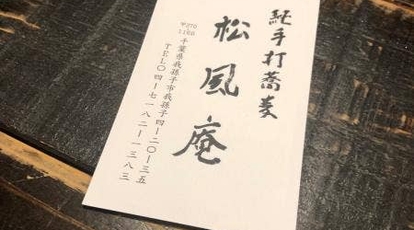 純手打蕎麦
松風庵
〒270
1166
千葉県我孫子市我孫子四ー二〇ー三五
TEL〇四ー七一八二ー一三八三